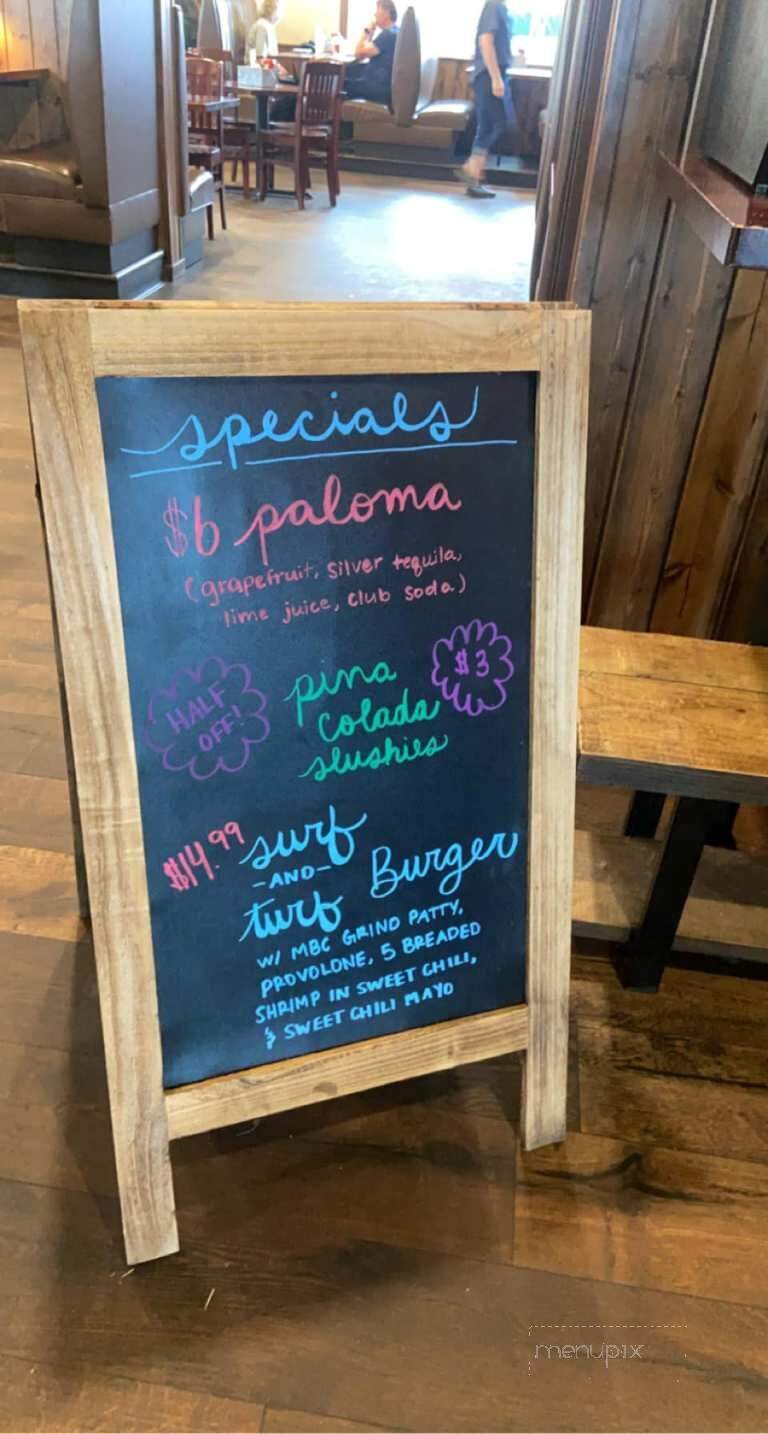 specials
$6 paloma
(grapefruit, silver tequila,
lime juice, club soda)
HALF
OFF!
pina
colada
slushies
$3
$14.99 surf
-AND-
turf Burger
W/ MBC GRIND PATTY,
PROVOLONE, 5 BREADED
SHRIMP IN SWEET CHILI,
& SWEET CHILI MAYO
menupix